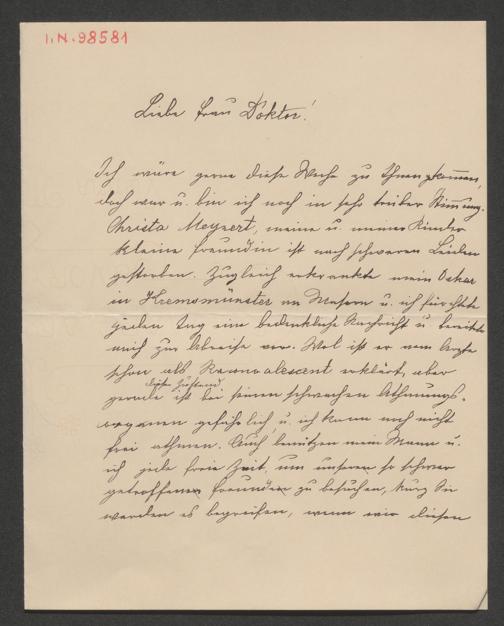 I.N. 98581
Liebe Frau Doktor!
Ich wäre gerne diese Woche zu Ihnen gekommen,
doch war u. bin ich noch in sehr trüber Stimmung.
Christa Meynert, meine u. meiner Kinder
kleine Freundin ist nach schweren Leiden
gestorben. Zugleich erkrankte mein Oskar
in Kremsmünster an Masern u. ich fürchtete
jeden Tag eine bedenkliche Nachricht u. bereitete
mich zur Abreise vor. Wol ist er vom Arzte
schon als Reconvalescent erklärt, aber
gerade dieser Zustand ist bei seinen schwachen Athmungs-
organen gefährlich, u. ich kann noch nicht
frei athmen. Auch benützen mein Mann u.
ich jede freie Zeit, um unseren so schwer
getroffenen Freunden zu besuchen, kurz Sie
werden es begreifen, wenn wir diesen